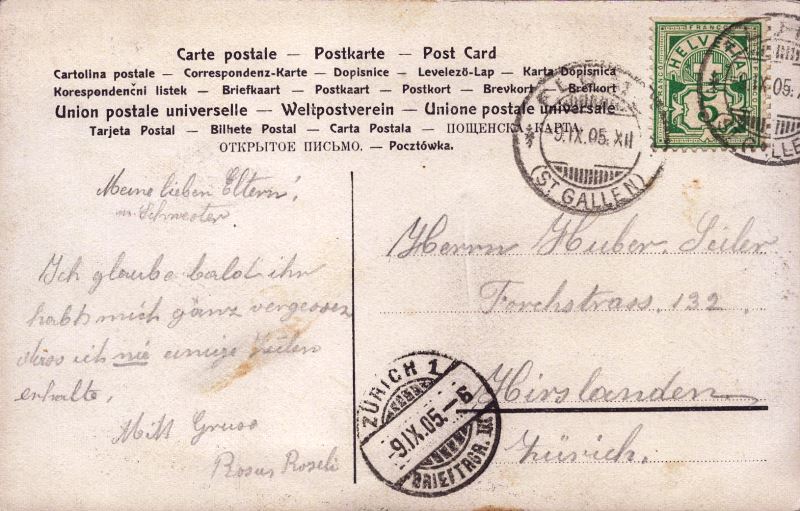 Carte postale — Postkarte — Post Card
Cartolina postale — Correspondenz-Karte — Dopisnice — Levelező-Lap — Karta Dopisnica
Korespondenční listek — Briefkaart — Postkaart — Postkort — Brevkort — Brefkort
Union postale universelle — Weltpostverein — Unione postale universale
Tarjeta Postal — Bilhete Postal — Carta Postala — ПОЩЕНСКА КАРТА
ОТКРЫТОЕ ПИСЬМО. — Pocztówka.
FRANCO
HELVETIA
5
9.IX.05.XII
(ST GALLEN)
05.
GALLE
Meine lieben Eltern!
u. Schwester
Ich glaube bald ihr
habt mich gänz vergessen
dass ich nie einige Zeilen
erhalte,
Mitt Gruss
Roseli
Herrn Huber. Seiler
Forchstrass. 132
Hirslanden
Zürich.
ZÜRICH 1
-9.IX.05.-6
BRIEFTRGR. III